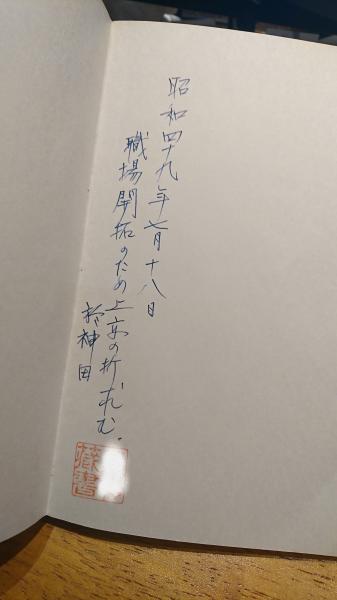 昭和四十九年七月十八日
職場開拓のため上京の折求む。
於神田
蔵書